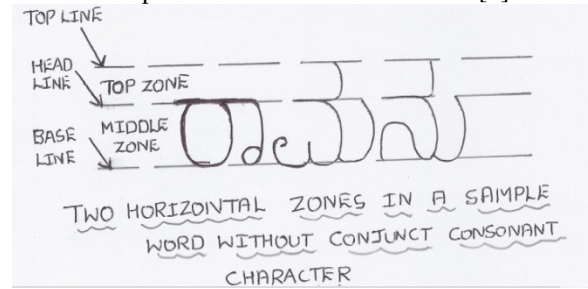 TOP LINE
HEAD
LINE
TOP ZONE
MIDDLE
ZONE
BASE
LINE
TWO HORIZONTAL ZONES IN A SAMPLE
WORD WITHOUT CONJUNCT CONSONANT
CHARACTER